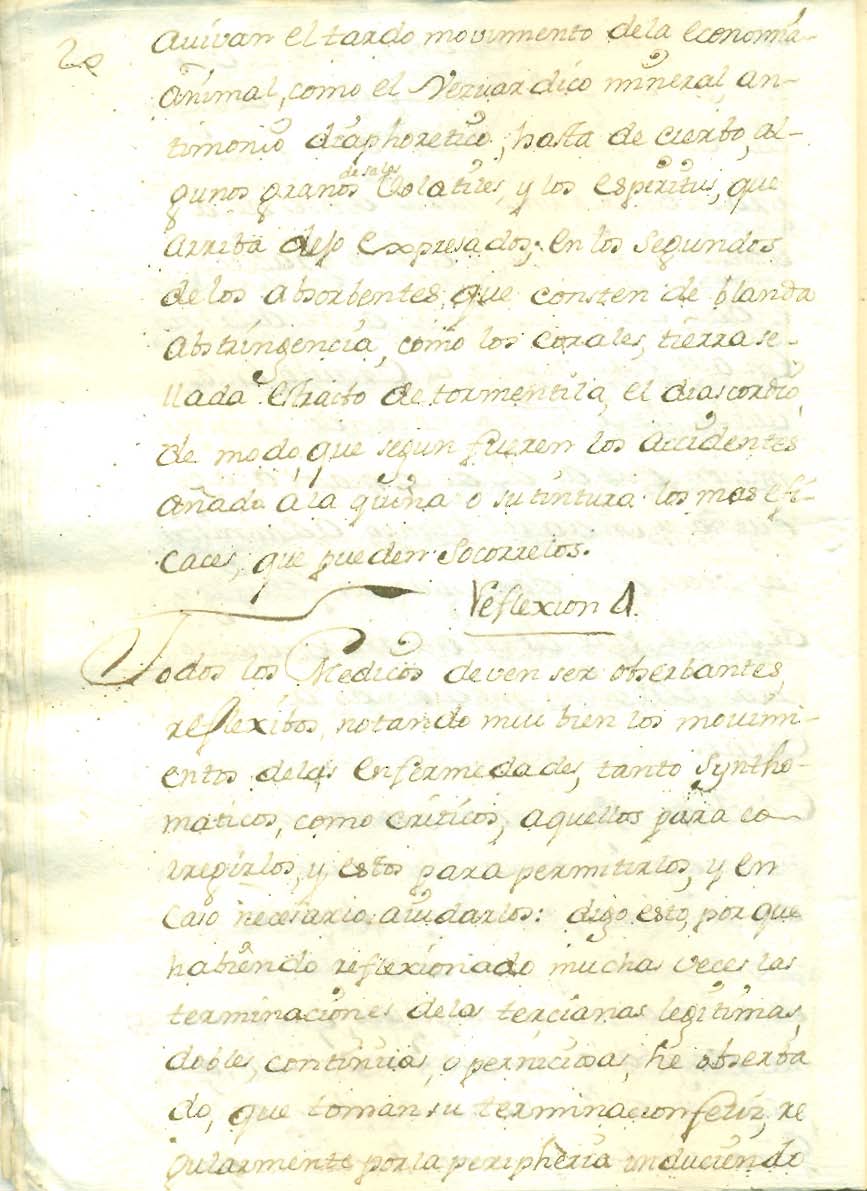 20
avivan el tardo movimiento dela economia
animal, como el Vezuardico mineral, an-
timonio diaphoretico, hasta de cierto, al-
gunos granos de sales Volatiles, y los espiritus, que
arriba dejo expresados; en los segundos
de los absorbentes, que consten de blanda
abstringencia, como los corales, tierra se-
llada extracto de tormentila, el diascordio,
de modo, que segun fueren los accidentes
añada à la quina o su tintura los mas efi-
caces, que pueden socorrelos.
Reflexion 4.
Todos los Medicos deven ser obserbantes,
reflexibos, notando mui bien los movimi-
entos delas enfermedades, tanto syntho-
maticos, como criticos, aquellos para co-
rregirlos, y estos para permitirlos, y en
caso necesario aiudarlos: digo esto, por que
habiendo reflexionado muchas veces las
terminaciones delas tercianas legitimas,
dobles, continuas, o perniciosas, he obserba
do, que toman su terminacion feliz, re
gularmente por la peripheria induciendo